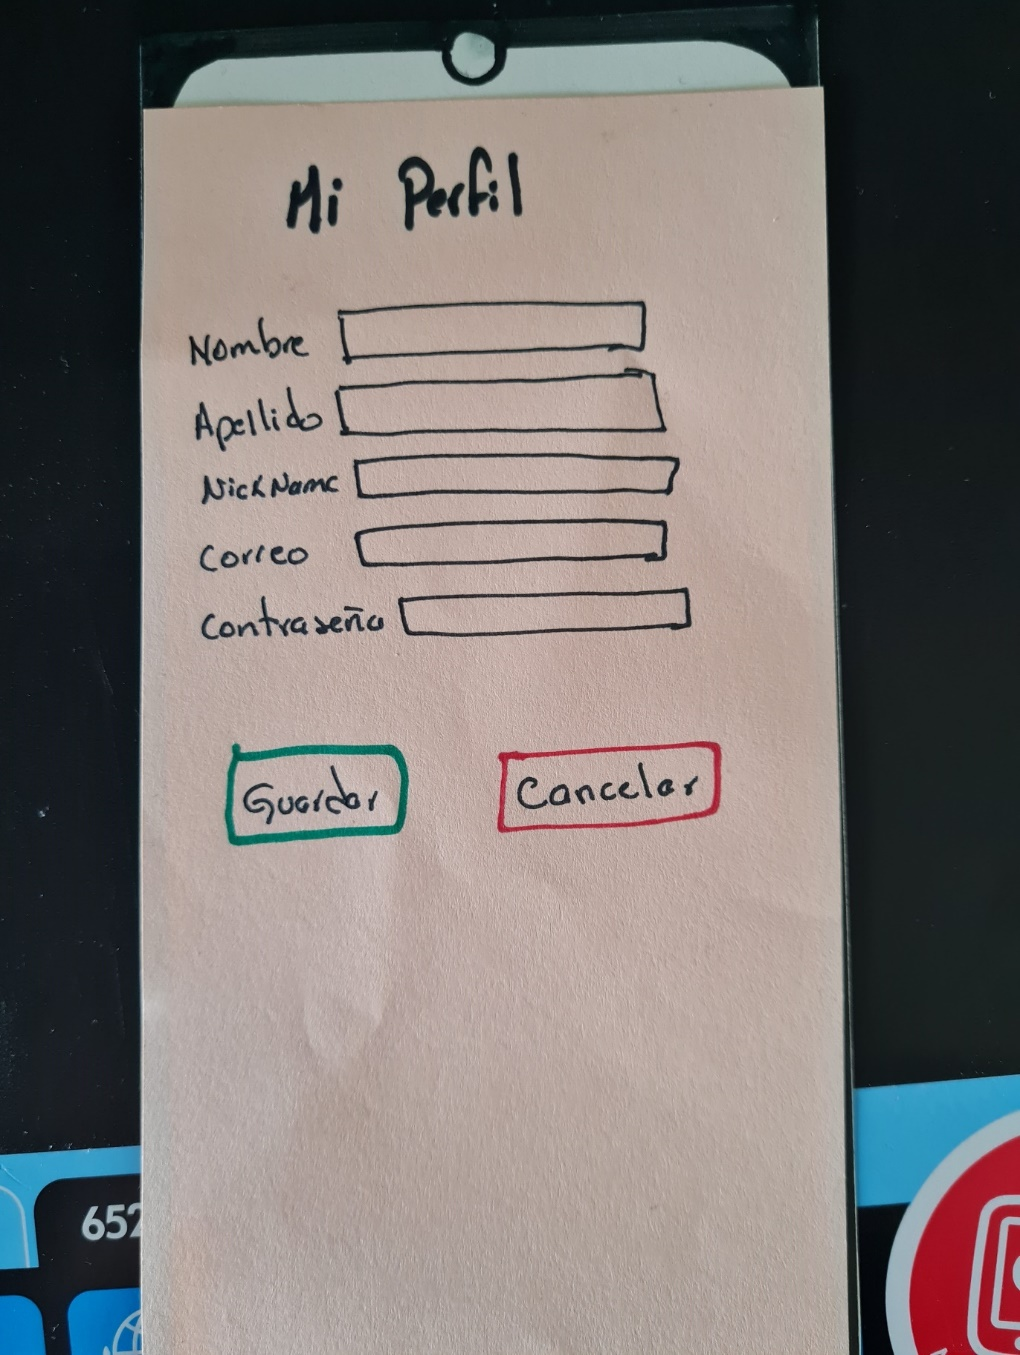 Mi Perfil
Nombre
Apellido
NickName
Correo
Contraseña
Guardar
Cancelar
652